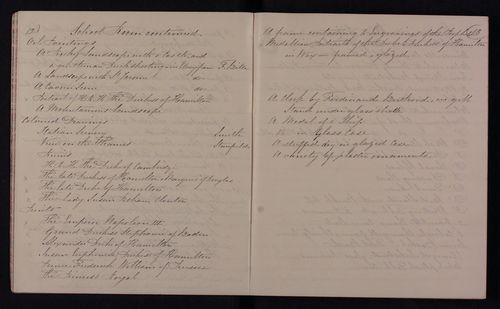 School Room continued.
Oil Paintings
A Rocky Landscape with a Castle and
A Landscape with St Jerome do
A Cavern Scene do
Portrait of H.R.H. The Duchess of Hamilton
A Mountainous Landscape
Colored Drawings
Italian Scenery Smith
View on the Thames Stanfield
Fruits
H.R.H. The Duke of Cambridge
The late Duchess of Hamilton & Marquis of Douglas
The late Duke of Hamilton
The Lady Susan Pelham Clinton
Prints
The Emperor Napoleon III
Grand Duchess Stephanie of Baden
Alexander Duke of Hamilton
Susan Euphemia Duchess of Hamilton
Prince Frederick William of Prussia
The Princess Royal
A frame containing 2 Engravings of the
Medallion Portraits of the Duke & Duchess of Hamilton
in Wax framed & glazed.
A Clock by Ferdinand Berthoud, on gilt
Stand under glass shade
A Model of a Ship
in Glass Case
A stuffed dog in glazed case
A variety of plaster ornaments.